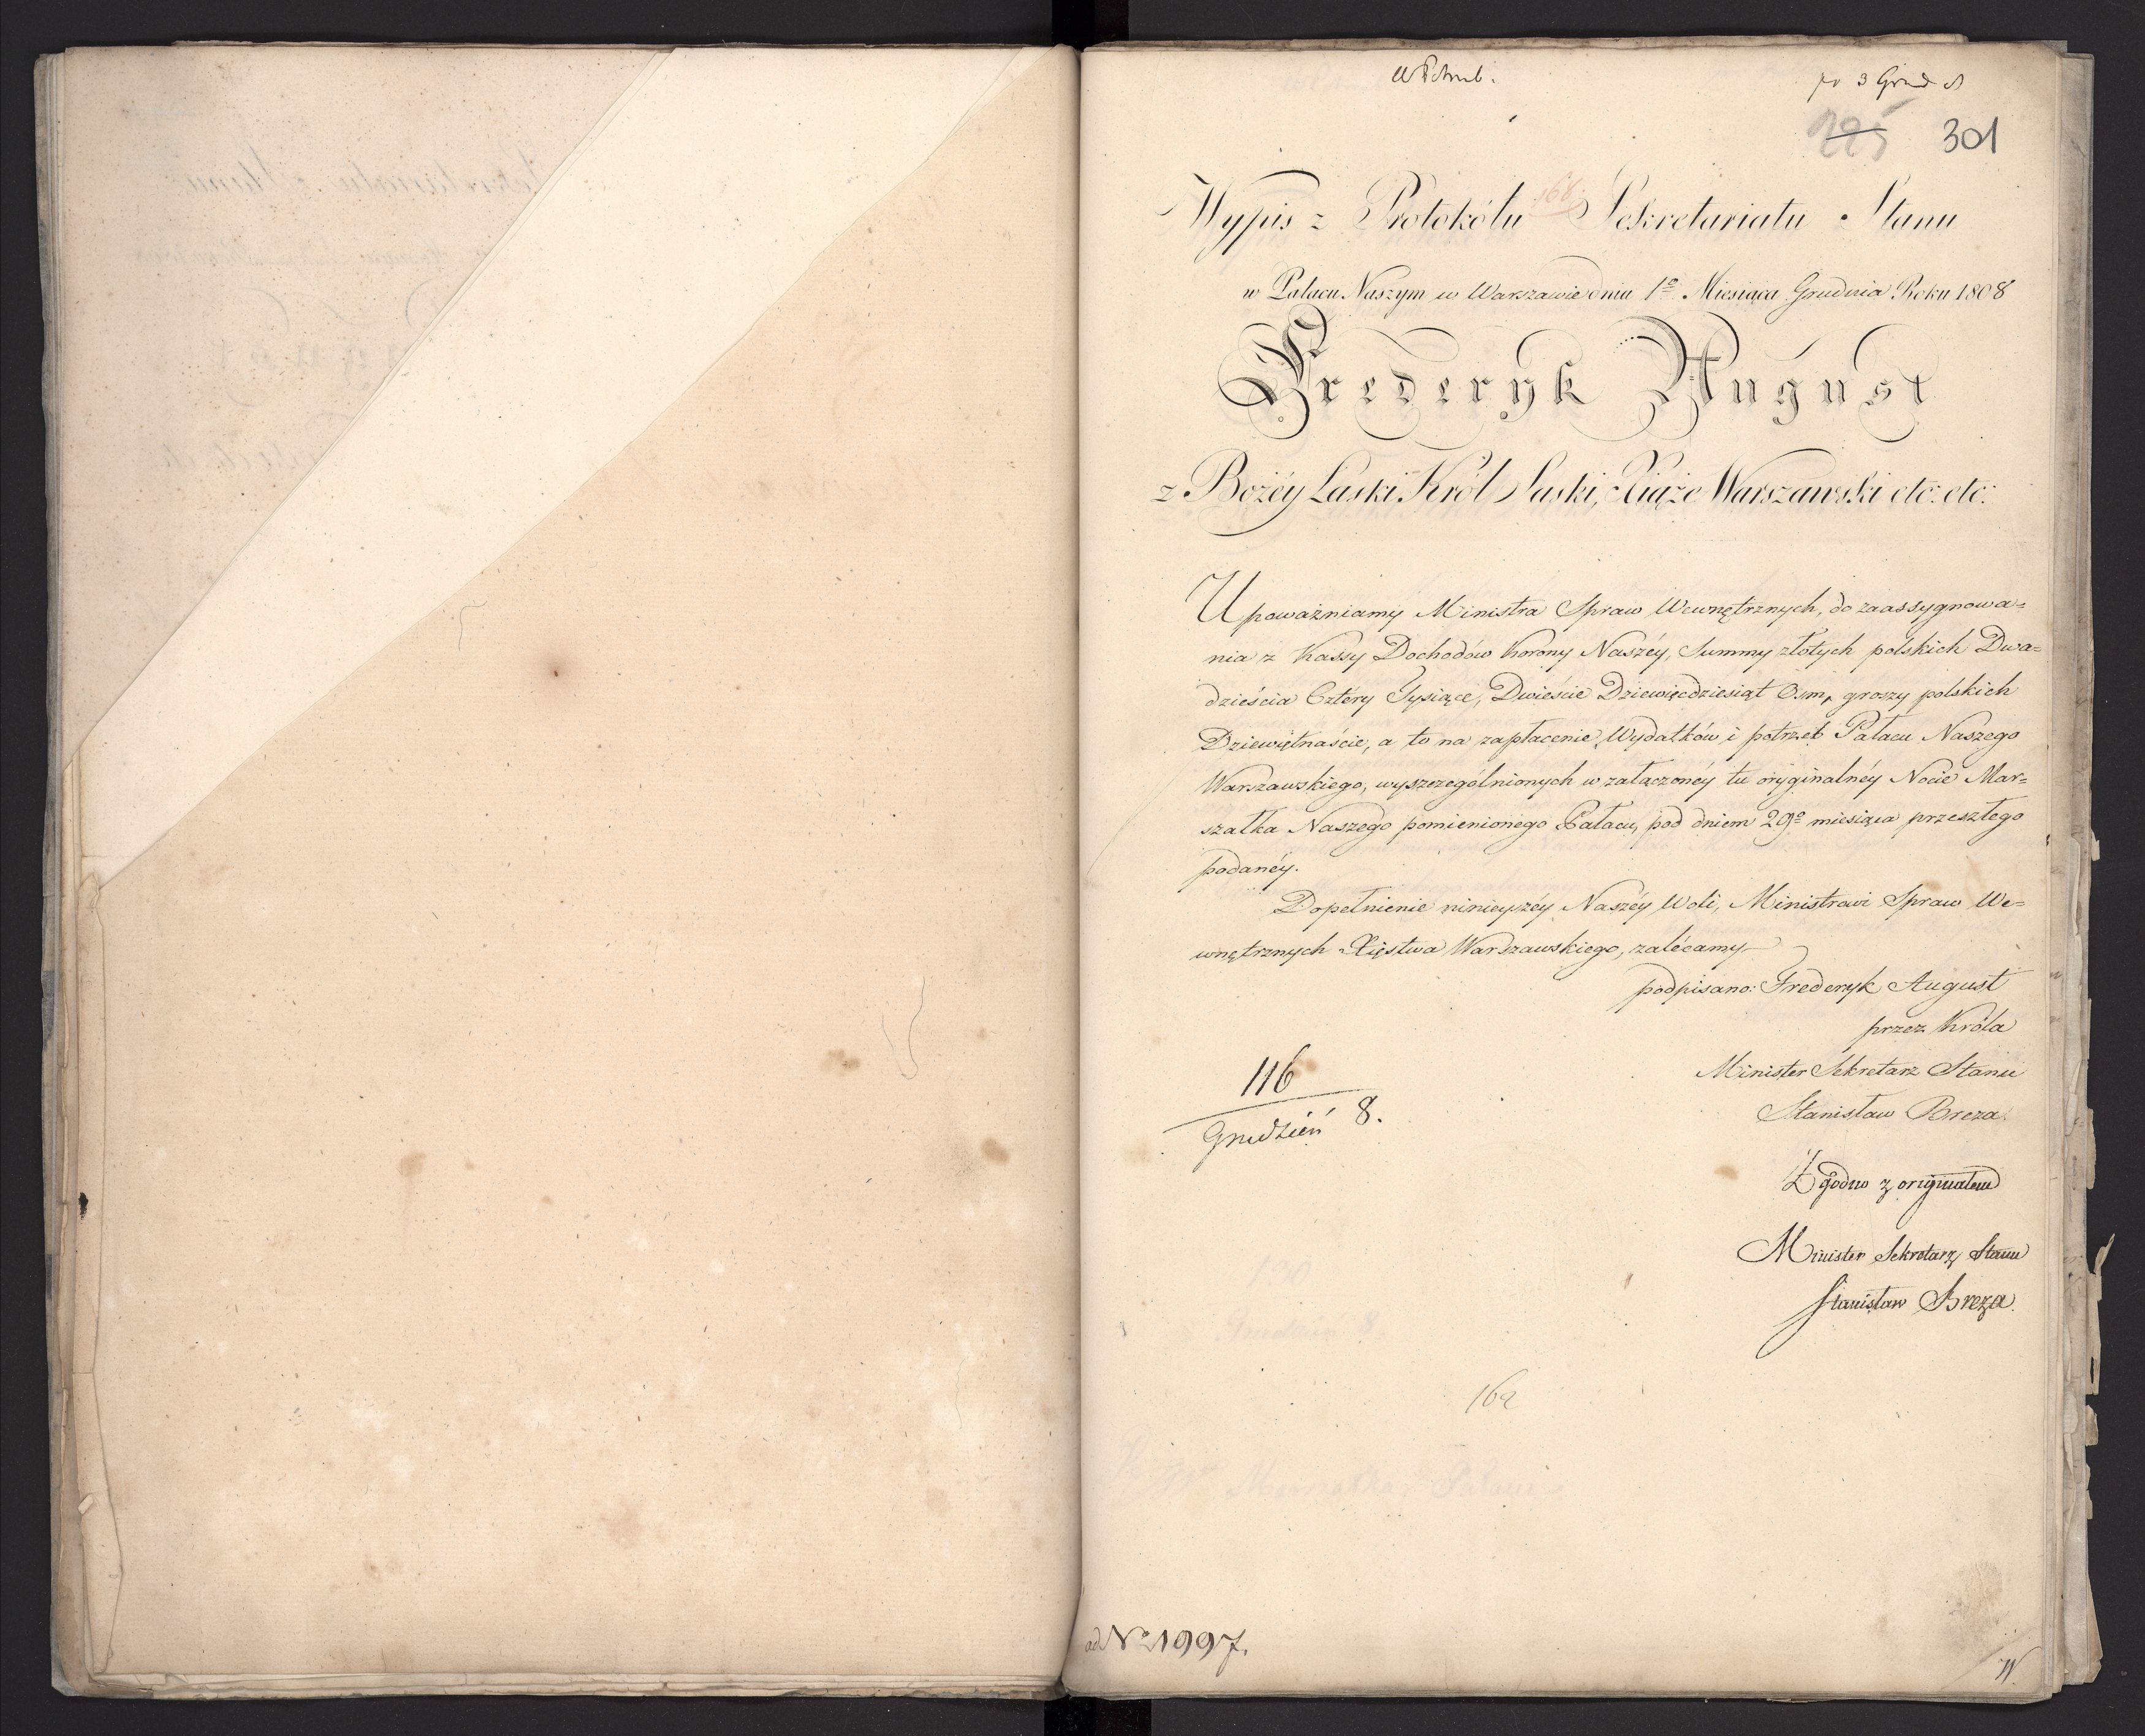 pr 3 Grud 8
225 301
168.
Wypis z Protokółu Sekretariatu Stanu
w Pałacu Naszym w Warszawie dnia 1º Miesiąca Grudnia Roku 1808
Frederyk August
z Bożéy Łaski Król Saski, Xiąże Warszawski etc: etc:
Upoważniamy Ministra Spraw Wewnętrznych, do zaassygnowa=
nia z Kassy Dochodów Korony Naszéy, Summy złotych polskich Dwa=
dzieścia Cztéry Tysiące, Dwieście Dziewięćdziesiąt Osm, groszy polskich
Dziewiętnaście, a to na zapłacenie Wydatków i potrzeb Pałacu Naszego
Warszawskiego, wyszczególnionych w załączonéy tu oryginalnéy Nocie Mar=
szałka Naszego pomienionego Pałacu, pod dniem 29º miesiąca przeszłego
podanéy.
Dopełnienie ninieyszéy Naszéy Woli, Ministrowi Spraw We=
wnętrznych Xięstwa Warszawskiego, zalécamy
podpisano: Frederyk August
przez Króla
Minister Sekretarz Stanu
Stanisław Breza.
116
Grudzień 8.
Zgodno z originałem
Minister Sekretarz Stanu
Stanisław Breza.
162
ad Nº 1997.